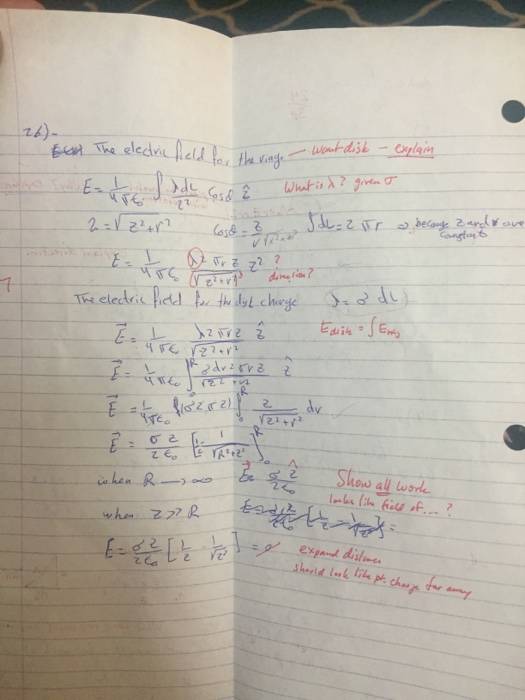 26)-
The electric field for the ring. — want disk - explain
E = 1/4πε₀ ∫ λdL/r² cosθ ẑ What is λ? given σ
r = √z²+r² cosθ = z/√r²+z² ∫dL = 2πr ⇒ because z and r are constants
E = 1/4πε₀ λ2πrz/(√z²+r²)³ ẑ ? direction?
The electric field for the disk charge λ = σ dr
E⃗ = 1/4πε₀ λ2πrz/√z²+r² ẑ E disk = ∫ E ring
E⃗ = 1/4πε₀ ∫₀ᴿ σdr2πrz/√z²+r² ẑ
E⃗ = 1/4πε₀ (σ2πz) ∫₀ᴿ r/√z²+r² dr
E⃗ = σz/2ε₀ [1/z - 1/√R²+z²]₀ᴿ
when R → ∞ E = σ/2ε₀ ẑ Show all work
looks like field of...?
when z >> R
E = σz/2ε₀ [1/z - 1/√z²] = 0 expand distance
should look like pt. charge far away